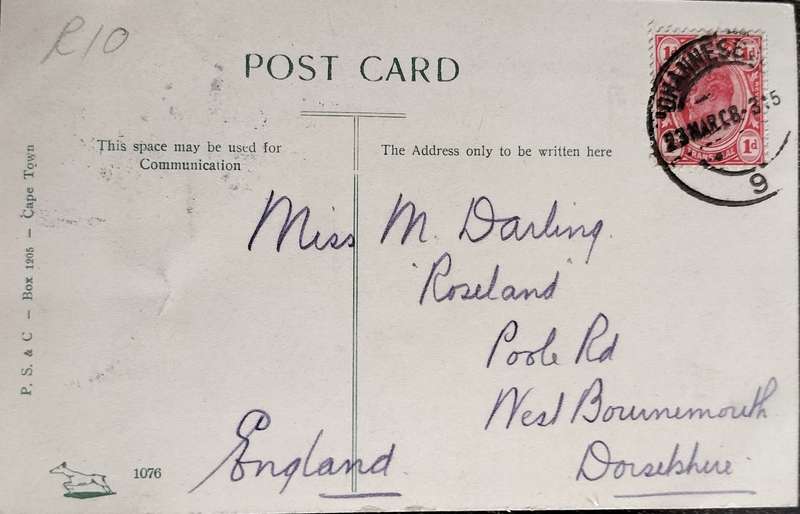 R10
POST CARD
This space may be used for
Communication
The Address only to be written here
1d 1d
JOHANNESBURG
23 MAR 08 · 3·15
9
Miss M. Darling.
"Roseland
Poole Rd
West Bournemouth
Dorsetshire
England.
P. S. & C — Box 1205 — Cape Town
1076